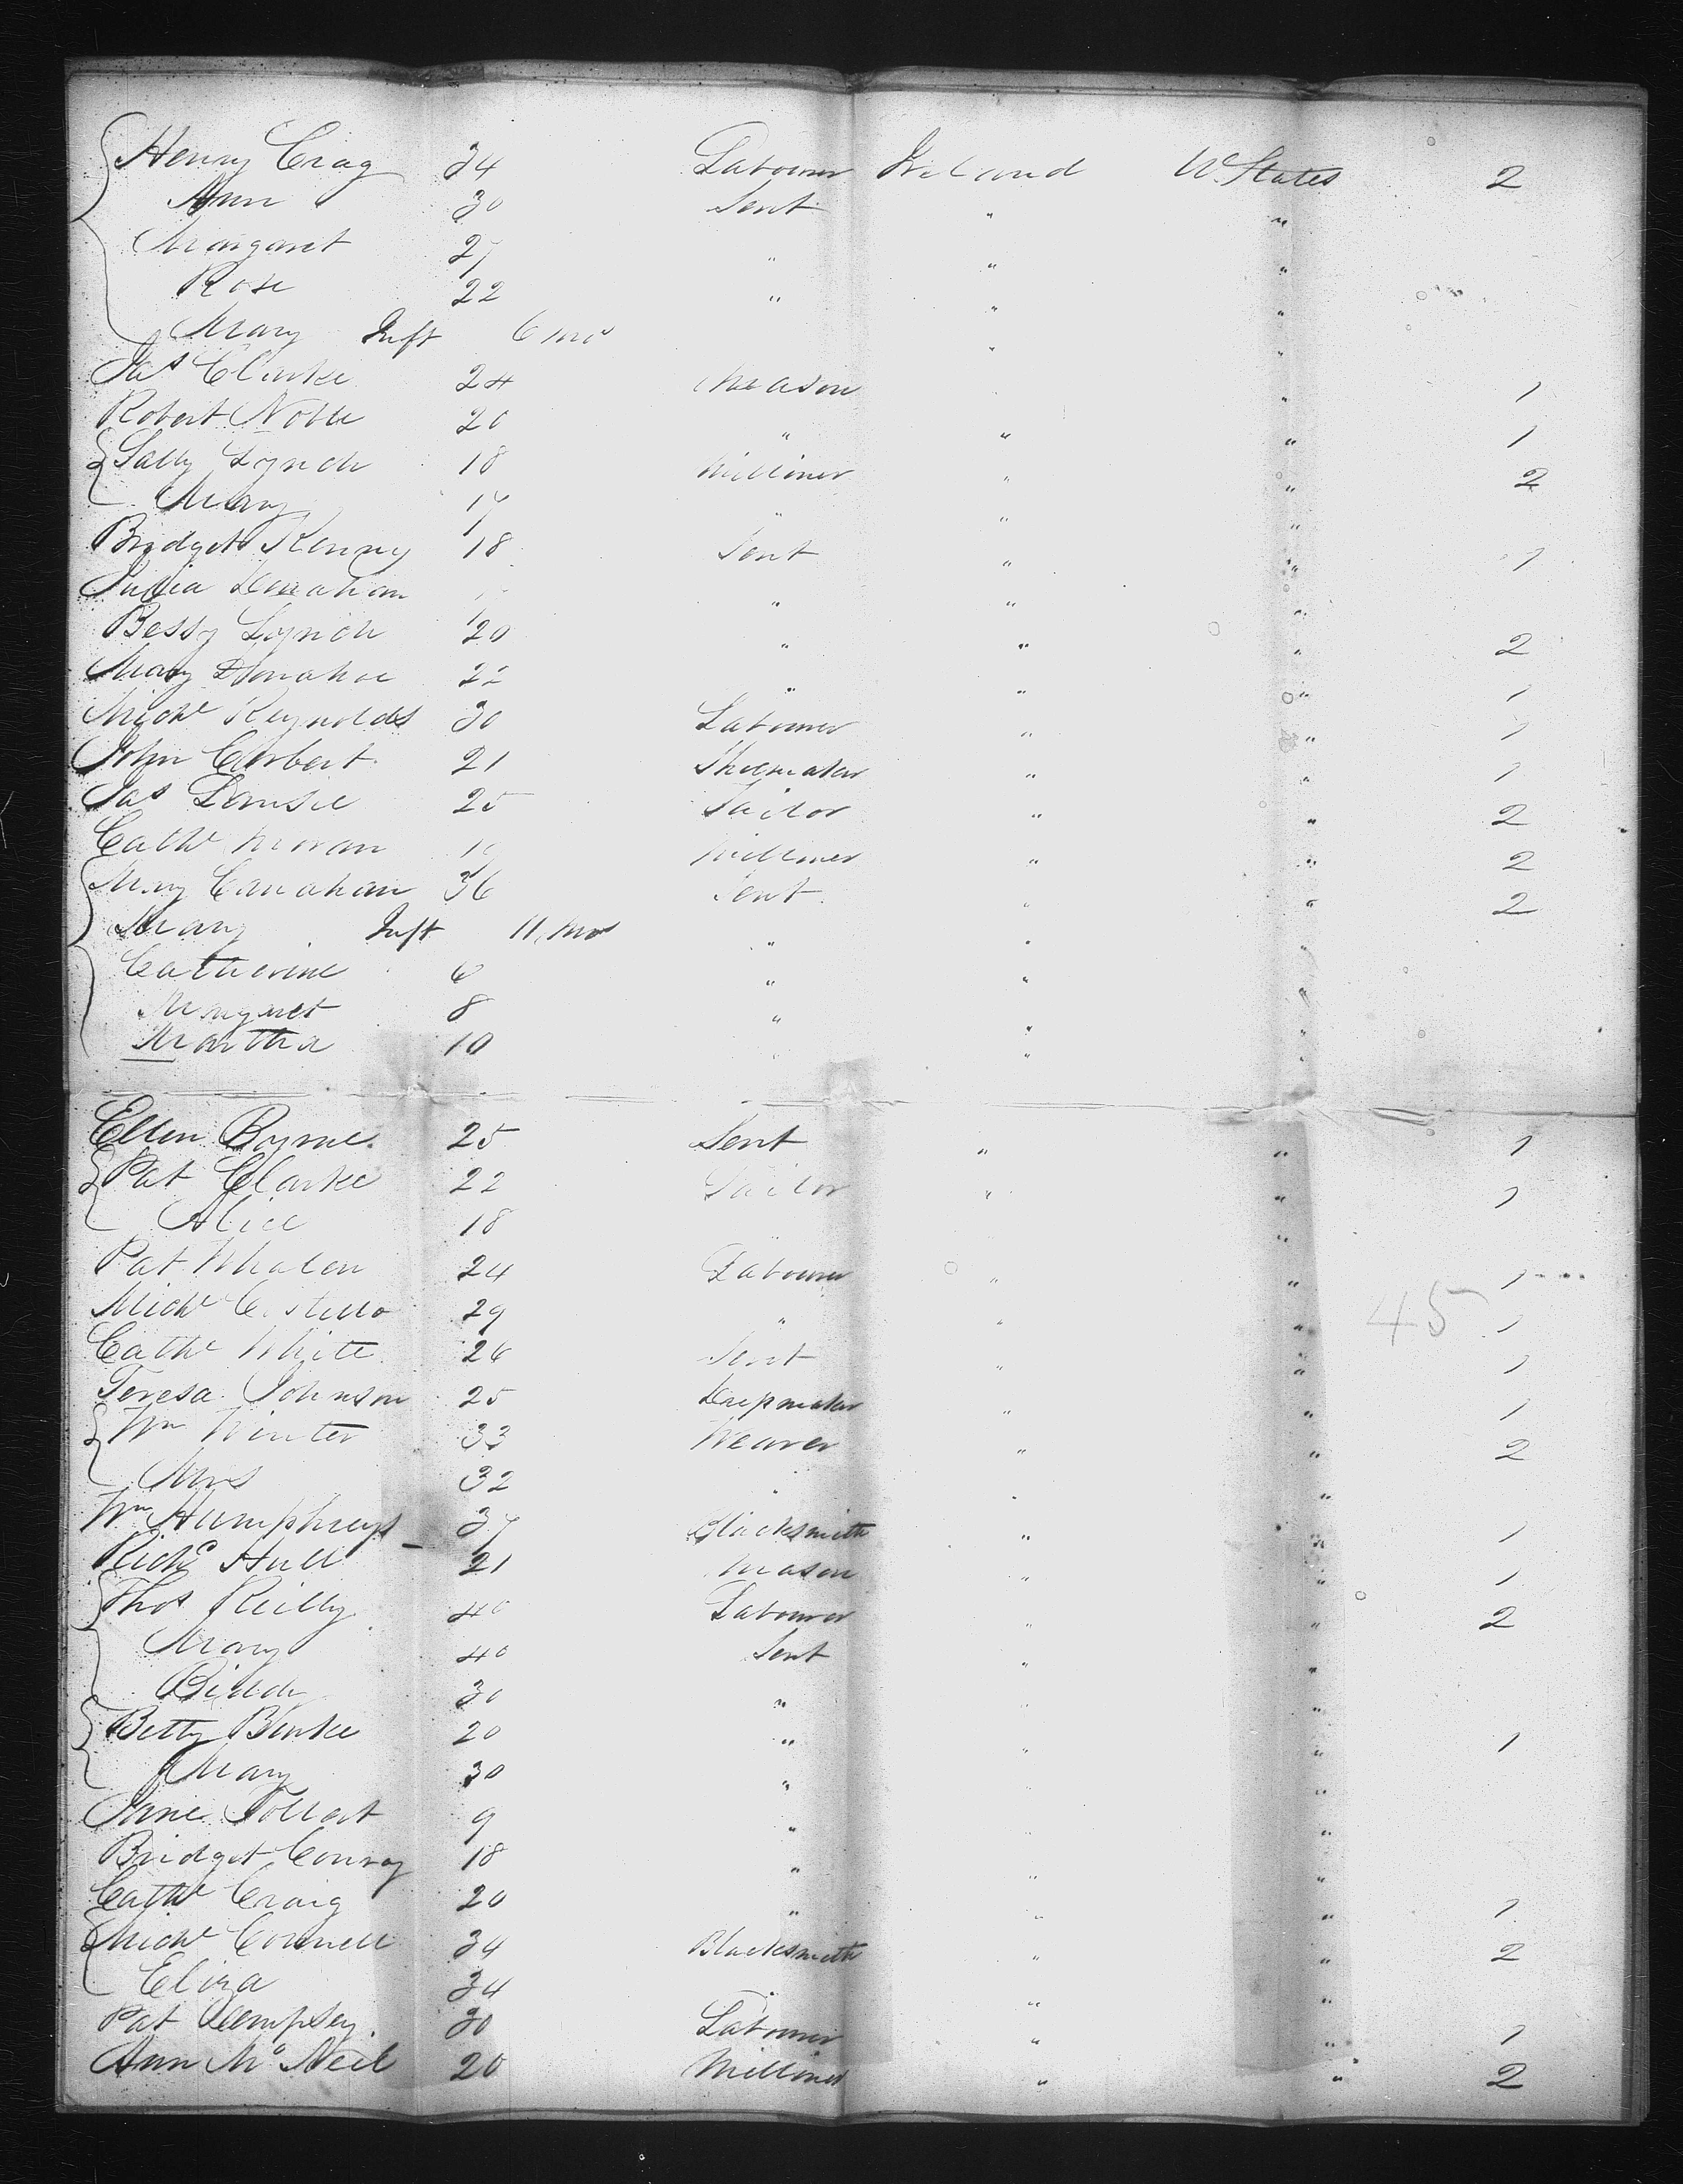 Henry Crag 34 Labourer Ireland U States 2
Ann 30 Sevt " "
Margaret 27 " " "
Rose 22 " " "
Mary Inft 6 mos " "
Jas Clarke 24 Mason " 1
Robert Noble 20 " " " 1
Sally Lynch 18 Milliner " " 2
Mary 17 " " "
Bridget Kenny 18 Sevt " " 1
Julia " " "
Bessy Lynch 20 " " " 2
Mary Donahoe 22 " " " 1
Michl Reynolds 30 Labourer " " 1
John Corbert 21 Shoemaker " " 1
Jas 25 Tailor " " 2
Cathe Moran Milliner " " 2
Mary Canahan 36 Sevt " " 2
Mary Inft 11 mos " " "
Catherine 6 " " "
Margaret 8 " " "
Martha 10 " " "
Ellen Byrne 25 Sevt " " 1
Pat Clarke 22 Tailor " " 1
Alice 18 "
Pat Whalen 24 Labourer " " 1
Michl Costello 29 " " " 45 1
Cathe White 26 Sevt " " 1
Teresa Johnson 25 " " 1
Wm Winter 33 Weaver " " 2
Mrs 32 " " "
Wm Humphreys 37 Blacksmith " " 1
Richd Hull 21 Mason " " 1
Thos Reilly 40 Labourer " " 2
Mary 40 Sevt " "
Biddy 30 " " "
Betty Burke 20 " " " 1
Mary 30 " "
Jane 9 " "
Bridget Conroy 18 " " "
Cathe Craig 20 " " " 1
Michl Connell 34 Blacksmith " " 2
Eliza 34 " "
Pat Dempsey 30 Labourer " " 1
Ann McNeil 20 Milliner " " 2